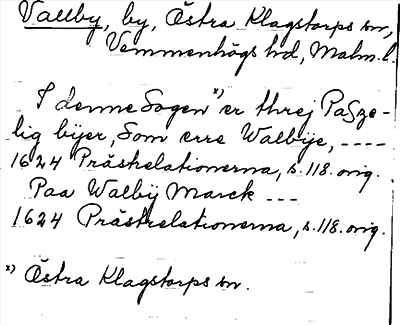 Vallby, by, Östra Klagstorps sn,
Vemmenhögs hd, Malm. l.
I denne Sogen x) er threj Paßze-
lig bÿer, Som erre Walbÿe, ----
1624 Prästrelationerna, s. 118. orig.
Paa Walbÿ Marck ---
1624 Prästrelationerna, s. 118. orig.
x) Östra Klagstorps sn.